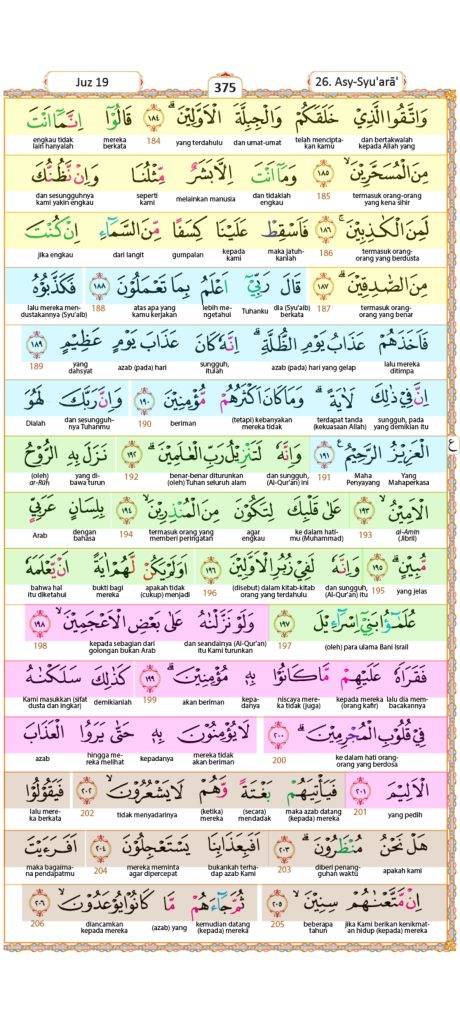 Juz 19
375
26. Asy-Syu'arā'
وَاتَّقُوا الَّذِيْ خَلَقَكُمْ وَالْجِبِلَّةَ الْاَوَّلِيْنَ ۗ ١٨٤ قَالُوْٓا اِنَّمَآ اَنْتَ
dan bertakwalah kepada Allah yang telah mencipta-kan kamu dan umat-umat yang terdahulu 184 mereka berkata engkau tidak lain hanyalah
مِنَ الْمُسَحَّرِيْنَ ۙ ١٨٥ وَمَآ اَنْتَ اِلَّا بَشَرٌ مِّثْلُنَا وَاِنْ نَّظُنُّكَ
termasuk orang-orang yang kena sihir 185 dan tidaklah engkau melainkan manusia seperti kami dan sesungguhnya kami yakin engkau
لَمِنَ الْكٰذِبِيْنَ ۚ ١٨٦ فَاَسْقِطْ عَلَيْنَا كِسَفًا مِّنَ السَّمَاۤءِ اِنْ كُنْتَ
termasuk orang-orang yang berdusta 186 maka jatuh-kanlah kepada kami gumpalan dari langit jika engkau
مِنَ الصّٰدِقِيْنَ ۗ ١٨٧ قَالَ رَبِّيْٓ اَعْلَمُ بِمَا تَعْمَلُوْنَ ١٨٨ فَكَذَّبُوْهُ
termasuk orang-orang yang benar 187 dia (Syu'aib) berkata Tuhanku lebih me-ngetahui atas apa yang kamu kerjakan 188 lalu mereka men-dustakannya (Syu'aib)
فَاَخَذَهُمْ عَذَابُ يَوْمِ الظُّلَّةِ ۗ اِنَّهٗ كَانَ عَذَابَ يَوْمٍ عَظِيْمٍ ١٨٩
lalu mereka ditimpa azab (pada) hari yang gelap sungguh, itulah azab (pada) hari yang dahsyat 189
اِنَّ فِيْ ذٰلِكَ لَاٰيَةً ۗ وَمَا كَانَ اَكْثَرُهُمْ مُّؤْمِنِيْنَ ١٩٠ وَاِنَّ رَبَّكَ لَهُوَ
sungguh, pada yang demikian itu terdapat tanda (kekuasaan Allah) (tetapi) kebanyakan mereka tidak beriman 190 dan sesungguh-nya Tuhanmu Dialah
الْعَزِيْزُ الرَّحِيْمُ ١٩١ وَاِنَّهٗ لَتَنْزِيْلُ رَبِّ الْعٰلَمِيْنَ ۗ ١٩٢ نَزَلَ بِهِ الرُّوْحُ
ع
Yang Mahaperkasa Maha Penyayang 191 dan sungguh, (Al-Qur'an) ini benar-benar diturunkan (oleh) Tuhan seluruh alam 192 yang di-bawa turun (oleh) ar-Rūḥ
الْاَمِيْنُ ۙ ١٩٣ عَلٰى قَلْبِكَ لِتَكُوْنَ مِنَ الْمُنْذِرِيْنَ ۙ ١٩٤ بِلِسَانٍ عَرَبِيٍّ
al-Amīn (Jibril) 193 ke dalam hati-mu (Muhammad) agar engkau termasuk orang yang memberi peringatan 194 dengan bahasa Arab
مُّبِيْنٍ ۗ ١٩٥ وَاِنَّهٗ لَفِيْ زُبُرِ الْاَوَّلِيْنَ ١٩٦ اَوَلَمْ يَكُنْ لَّهُمْ اٰيَةً اَنْ يَّعْلَمَهٗ
yang jelas 195 dan sungguh, (Al-Qur'an) itu (disebut) dalam kitab-kitab orang yang terdahulu 196 apakah tidak (cukup) menjadi bukti bagi mereka bahwa hal itu diketahui
عُلَمٰۤؤُا بَنِيْٓ اِسْرَاۤءِيْلَ ١٩٧ وَلَوْ نَزَّلْنٰهُ عَلٰى بَعْضِ الْاَعْجَمِيْنَ ۙ ١٩٨
(oleh) para ulama Bani Israil 197 dan seandainya (Al-Qur'an) itu Kami turunkan kepada sebagian dari golongan bukan Arab 198
فَقَرَاَهٗ عَلَيْهِمْ مَّا كَانُوْا بِهٖ مُؤْمِنِيْنَ ۗ ١٩٩ كَذٰلِكَ سَلَكْنٰهُ
lalu dia mem-bacakannya kepada mereka (orang kafir) niscaya mere-ka tidak (juga) kepa-danya akan beriman 199 demikianlah Kami masukkan (sifat dusta dan ingkar)
فِيْ قُلُوْبِ الْمُجْرِمِيْنَ ۗ ٢٠٠ لَا يُؤْمِنُوْنَ بِهٖ حَتّٰى يَرَوُا الْعَذَابَ
ke dalam hati orang-orang yang berdosa 200 mereka tidak akan beriman kepadanya hingga me-reka melihat azab
الْاَلِيْمَ ۙ ٢٠١ فَيَأْتِيَهُمْ بَغْتَةً وَّهُمْ لَا يَشْعُرُوْنَ ۙ ٢٠٢ فَيَقُوْلُوْا
yang pedih 201 maka azab datang (kepada) mereka (secara) mendadak (ketika) mereka tidak menyadarinya 202 lalu mere-ka berkata
هَلْ نَحْنُ مُنْظَرُوْنَ ۗ ٢٠٣ اَفَبِعَذَابِنَا يَسْتَعْجِلُوْنَ ٢٠٤ اَفَرَءَيْتَ
apakah kami diberi penang-guhan waktu 203 bukankah terha-dap azab Kami mereka meminta agar dipercepat 204 maka bagaima-na pendapatmu
اِنْ مَّتَّعْنٰهُمْ سِنِيْنَ ۙ ٢٠٥ ثُمَّ جَاۤءَهُمْ مَّا كَانُوْا يُوْعَدُوْنَ ۙ ٢٠٦
jika Kami berikan kenikmat-an hidup (kepada) mereka beberapa tahun 205 kemudian datang (kepada) mereka (azab) yang diancamkan kepada mereka 206